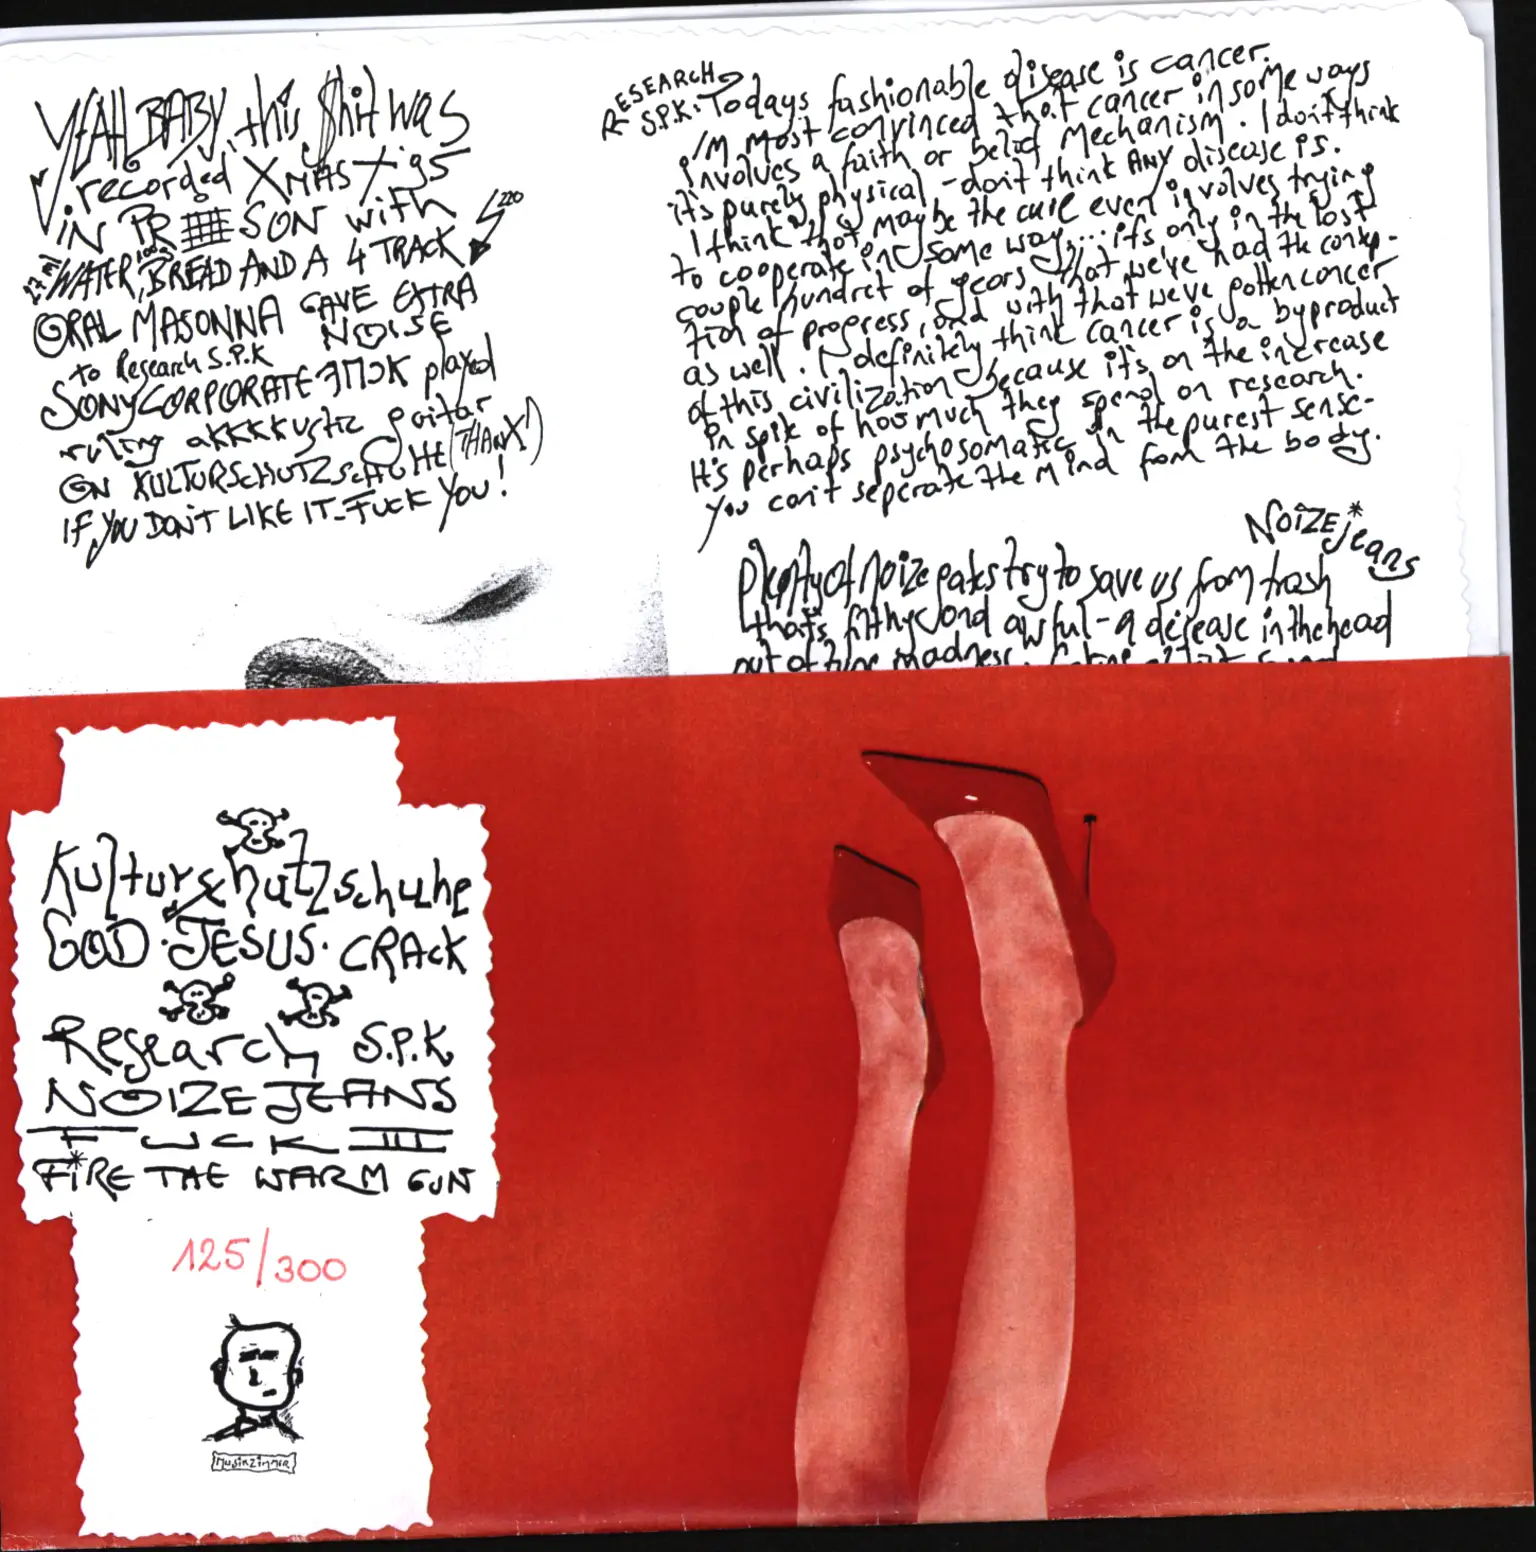 YEAH BABY, this $hit was
recorded XMAS '95
in PRISON with
WATER, BREAD AND A 4 TRACK
220
ORAL MASONNA GAVE EXTRA
NOISE
to Research S.P.K
SONY CORPORATE played
ruling akkkkustic guitar
ON KULTURSCHUTZSCHUHE (THANX!)
IF YOU DON'T LIKE IT - FUCK YOU!
RESEARCH
S.P.K: Todays fashionable disease is cancer.
I'M most convinced that cancer in some ways
involves a faith or belief Mechanism. I don't think
it's purely physical - don't think ANY disease is.
I think that maybe the cure even involves trying
to cooperate in some way... it's only in the last
couple hundret of years that we've had the concep-
tion of progress, and with that we've gotten cancer
as well. I definitely think cancer is a byproduct
of this civilization because it's on the increase
in spite of how much they spend on research.
It's perhaps psychosomatic in the purest sense-
you can't seperate the mind from the body.
NOIZE*jeans
Plenty of noize paks try to save us from trash
that's filthy and awful - a disease in the head
out of madness.
Kulturschutzschuhe
GOD·JESUS·CRACK
Research S.P.K
NOIZE JEANS
FUCK III
FIRE THE WARM GUN
125/300
MUSIKZIMMER